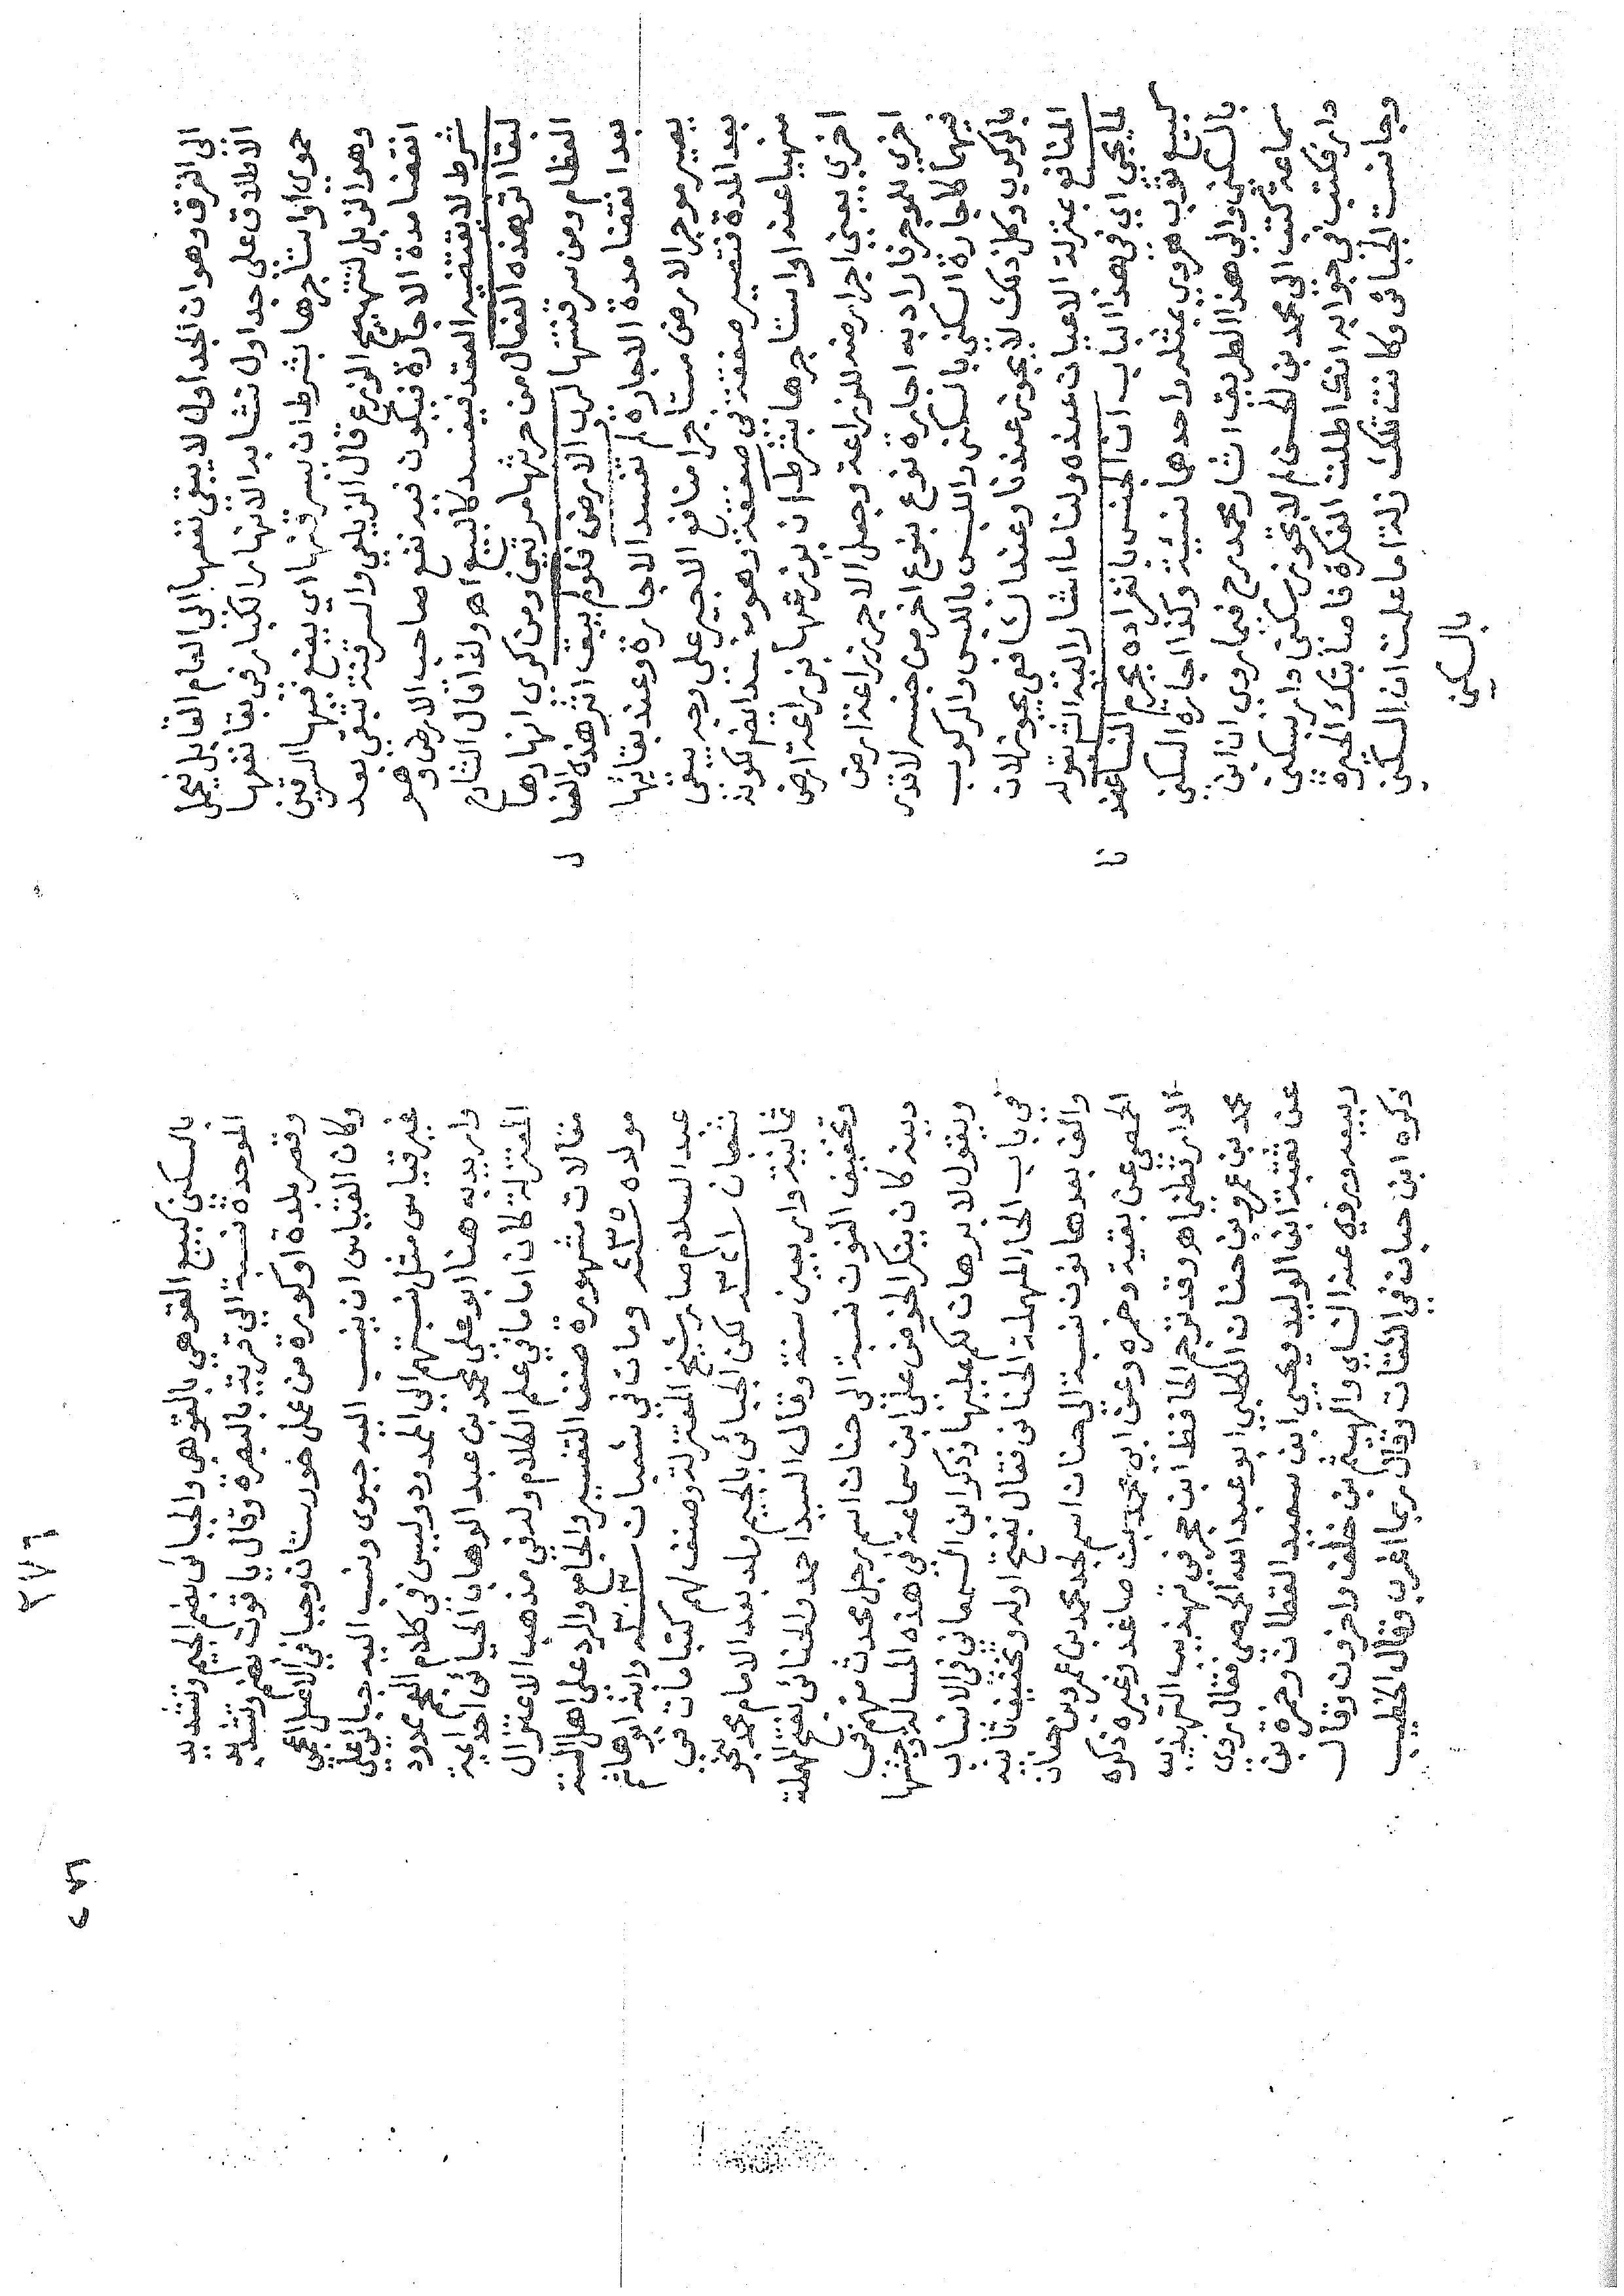 الى الغرق وهو ان الجداول لا يبقى نفعها الى العام القابل فيحمل
الاطلاق على جداول تشابه الانهار الكبار في بقا نفعها
حموي او استأجرها بشرط ان يسرقنها اي يضع فيها السرقين
وهو الزبل لتهييج الزرع قال الزيلعي والسرقنة تبقى بعد
انقضا مدة الاجارة فيكون فيه نفع صاحب الارض وهو
شرط لا يقتضيه العقد فيفسد كالبيع اهـ ولذا قال الشارح
لبقا اثر هذه الافعال من حرثها مرتين ومن كري انهارها
العظام ومن سرقنتها لرب الارض فلو لم يبق اثر هذه الافعا
ل
بعد انقضا مدة الاجارة لم تفسد الاجارة وعند بقايها
يصير موجر الارض مستأجرا منافع الاجير على وجه يبقى
بعد المدة فتصير صفقة في صفقة وهو مفسد ايضا لكونه
منهيا عنه او استأجرها بشرط ان يزرعها بزراعة ارض
اخري يعني اجر ارضه للزراعة وجعل الاجر زراعة ارض
اخري للموجر فاراد به اجارة نوع بنوع اخر من جنسه لاتحاد
فيهما كاجارة السكنى بالسكنى واللبس باللبس والركوب
بالركوب وكل ذلك لا يجوز عندنا وعند الشافعي يجوز لان
المنافع بمنزلة الاعيان عنده ولنا ما اشار اليه الش بقوله
لما يجي اي في هذا الباب ان الجنس بانفراده يحرم النسا عند
نا
كبيع ثوب هروي بمثله واحدهما نسيئة وكذا اجارة السكنى
بالسكنى والى هذا الطريق اشار محمد رح فيما روي ان ابن
سماعة كتب الى محمد بن الحسن لم لا تجوز سكنى دار بسكنى
دار فكتب في جوابه انك اطلت الفكرة فاصابتك الحيرة
وجالست الجبائى وكانت منك زلة اما علمت ان السكنى
بالسكنى
٢٧٦
بالسكنى كبيع القوهي بالقوهي والجبائى بضم الجيم وتشديد
الموحدة نسبة الي قرية بالبصرة وقال ياقوت بضم وتشديد
وقصر بلدة او كورة من عمل خوزستان وجبا في الاصل اعجمي
وكان القياس ان ينسب اليه جبوى ونسب اليه جبائي على
غير قياس مثل نسبتهم الي الممدود وليس في كلام العجم ممدود
واريد به هنا ابو على محمد بن عبد الوهاب الجبائى احد ايمة
المعتزلة كان اماما في علم الكلام وله في مذهب الاعتزال
مقالات مشهورة صنف التفسير والجامع والرد على اهل السنة
مولده سنة ٢٣٥ ومات في شعبان سنة ٣٠٣ وابنه ابو هاشم
عبد السلام صار شيخ المعتزلة وصنف لهم كتبا مات في
شعبان سنة ٣٢١ لكن الجبائى بالجيم ولد بعد الامام محمد بنحو
ثمانية واربعين سنة وقال السيد احمد والحنائى بفتح المهملة
وتخفيف النون نسبة الى حنان اسم رجل محدث منهم في
دينه كان ينكر الخوض على ابن سماعة في هذه المسالة ويرجحها
ويقول لا برهان لكم عليها وذكر ابن السمعاني في الانساب
في باب الحاء المهملة الحنانى فقال بفتح اوله وتخفيف ثانيه
والف بعدها نون نسبة الى حنان اسم لجد محمد بن عمرو بن حنان
الحمصي عن بقية وحمزه وعن ابي محمد بن صاعد وغيره ذكره
الدارقطني اهـ وقد ترجم الحافظ ابن حجر في تهذيب التهذيب
محمد بن عمرو بن حنان الكلبي ابو عبد الله الحمصي فقال روى
عن بقية ابن الوليد ويحيى ابن سعيد القطان وحمزه بن
ربيعه وروي عنه النساي والهيثم بن خلف واخرون وقال
ذكره ابن حبان في الثقات وقال ربما اغرب وقال الخطيب